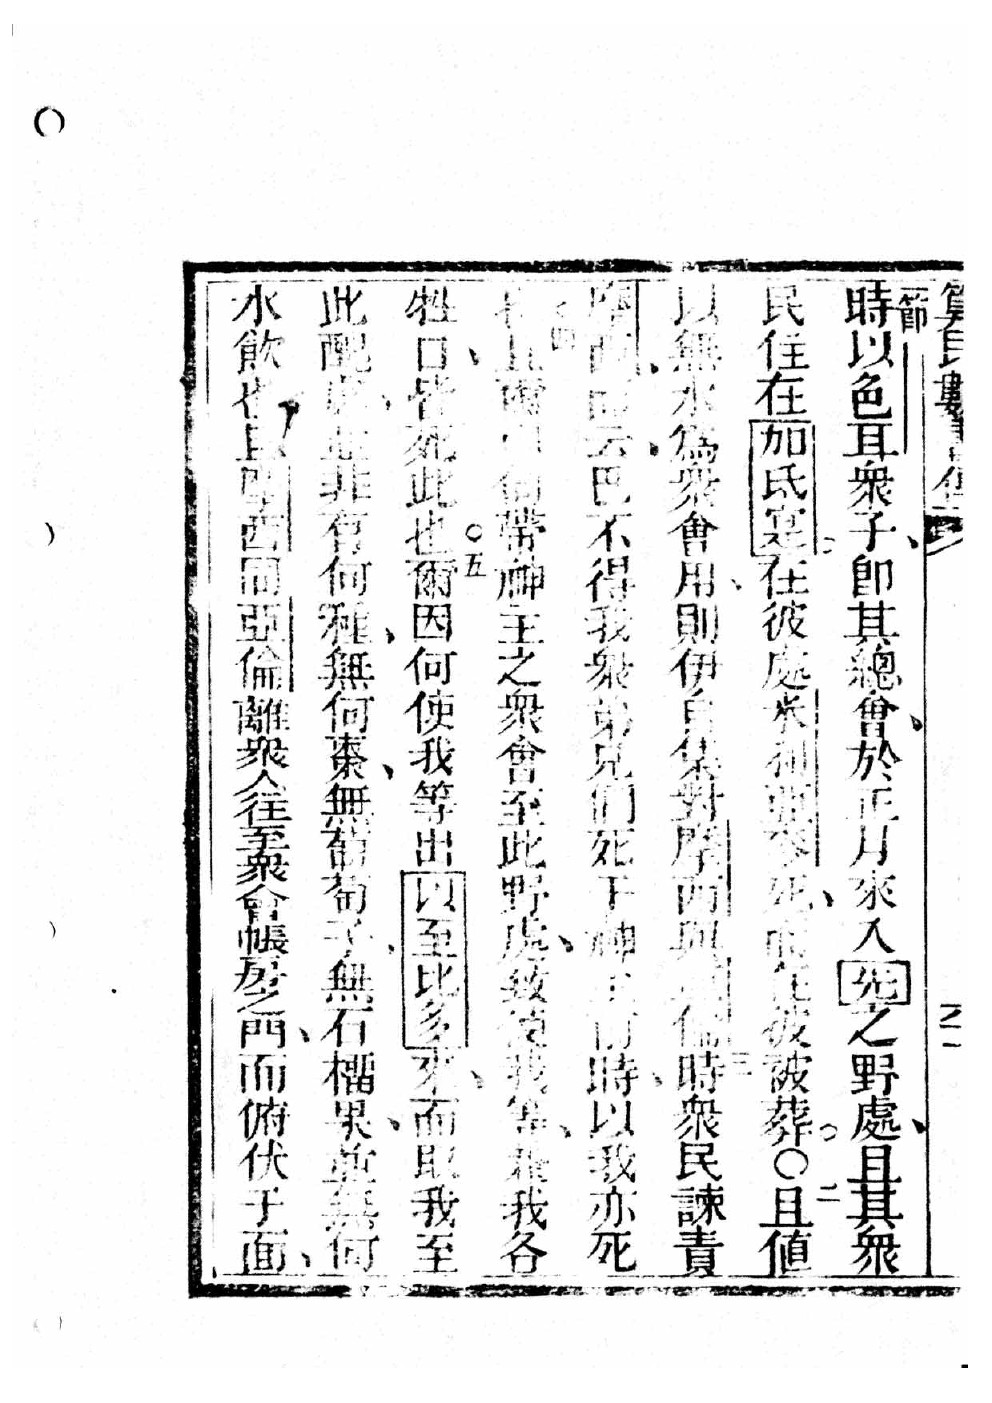 算民數書傳
一節
時以色耳衆子即其總會於正月來入死之野處且其衆
民住在加氐寔在彼處米利亞
死
彼被葬〇且値
二
以無水爲衆會用則伊自集對摩西與
倫時衆民諫責
三
摩西
云巴不得我衆弟兄們死于神主前時以我亦死
四
何帶神主之衆會至此野處致使我等
我各
牲口皆死此也爾因何使我等出以至比多來而取我至
五
此
處
非有何種無何棗無葡萄子無石榴果並無何
水飲也且摩西同亞倫離衆人往至衆會帳房之門而俯伏于面